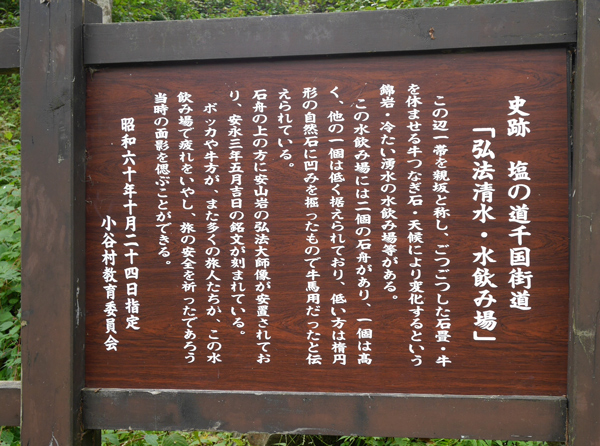 史跡 塩の道千国街道
「弘法清水・水飲み場」
この辺一帯を親坂と称し、ごつごつした石畳・牛
を休ませる牛つなぎ石・天候により変化するという
錦岩・冷たい湧水の水飲み場等がある。
この水飲み場には二個の石舟があり、一個は高
く、他の一個は低く据えられており、低い方は楕円
形の自然石に凹みを掘ったもので牛馬用だったと伝
えられている。
石舟の上の方に安山岩の弘法大師像が安置されてお
り、安永三年五月吉日の銘文が刻まれている。
ボッカや牛方が、また多くの旅人たちが、この水
飲み場で疲れをいやし、旅の安全を祈ったであろう
当時の面影を偲ぶことができる。
昭和六十年十月二十四日指定
小谷村教育委員会